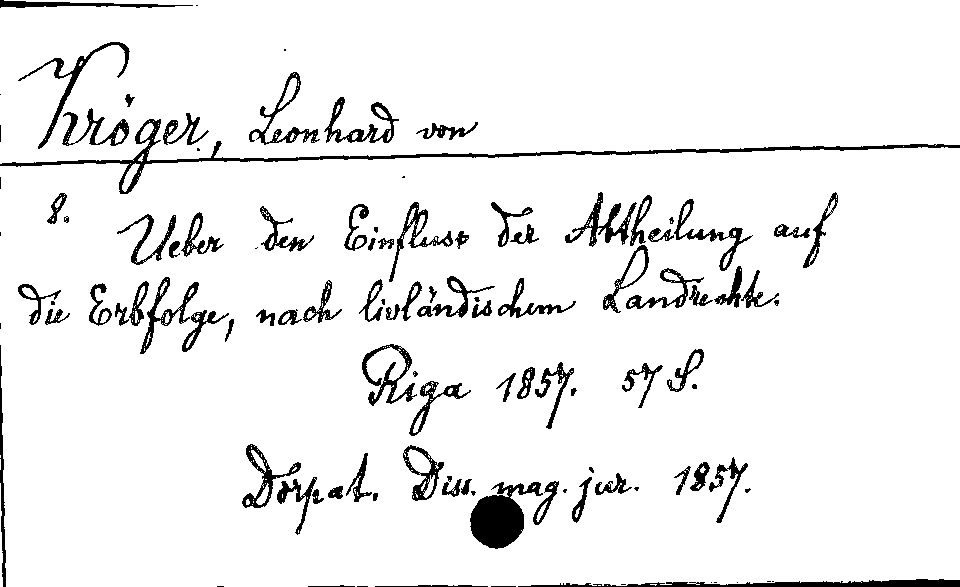 Kröger, Leonhard von
8.
Ueber den Einfluss der Abtheilung auf
die Erbfolge, nach livländischem Landrechte.
Riga 1857. 57 S.
Dorpat. Diss. mag. jur. 1857.